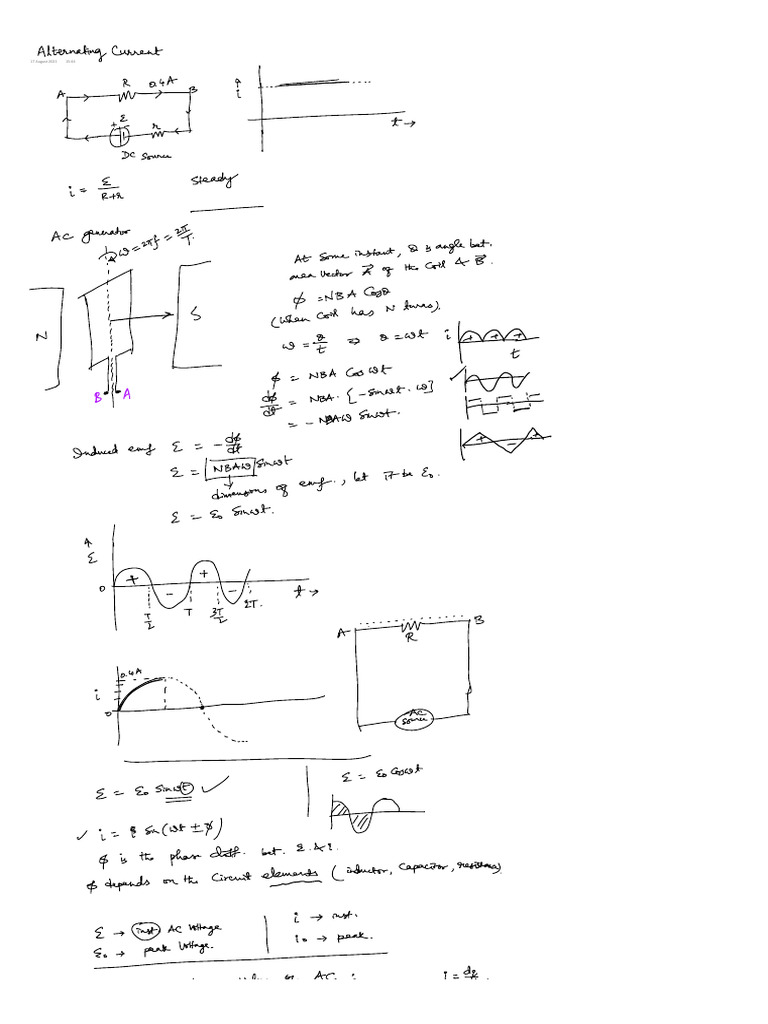 Alternating Current
17 August 2023
R 0.4A
A B
+ ε r
DC Source
i
t →
i = ε / R+r
Steady
AC generator
ω = 2πf = 2π/T.
N
S
B A
At some instant, θ is angle bet.
area vector A⃗ of the coil & B⃗.
ϕ = NBA Cosθ
(when coil has N turns).
ω = θ/t ⇒ θ = ωt
ϕ = NBA Cos ωt
dϕ/dt = NBA. [-Sinωt. ω]
= - NBAω Sinωt.
i + + +
t
✓
+ - +
Induced emf ε = - dϕ/dt
ε = NBAω Sinωt
dimensions of emf., let it be ε₀.
ε = ε₀ Sinωt.
ε
0 + - + -
T/2 T 3T/2 2T.
t →
A B
R
AC source
0.4A
i
0
ε = ε₀ Sinωt ✓
ε = ε₀ Cosωt
✓ i = Sin(ωt ± ϕ)
ϕ is the phase diff. bet. ε & i.
ϕ depends on the circuit elements (inductor, Capacitor, resistance)
ε → inst AC Voltage
ε₀ → peak Voltage.
i → inst.
i₀ → peak.
AC :
i = dq/